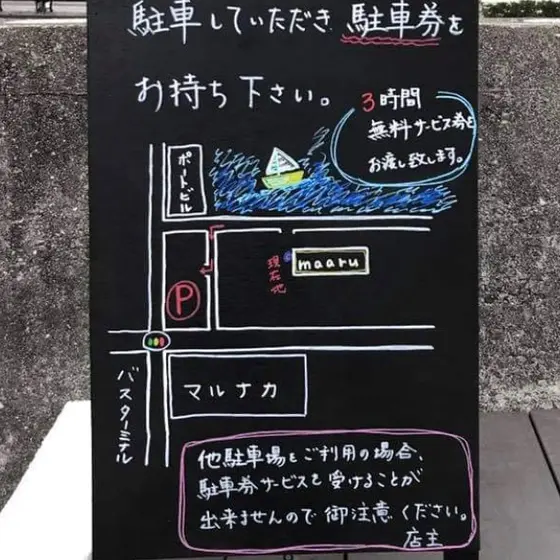 駐車していただき 駐車券を
お持ち下さい。
3時間
無料サービス券を
お渡し致します。
ポートビル
maaru
現在地
P
マルナカ
バスターミナル
他駐車場をご利用の場合、
駐車券サービスを受けることが
出来ませんので御注意ください。
店主